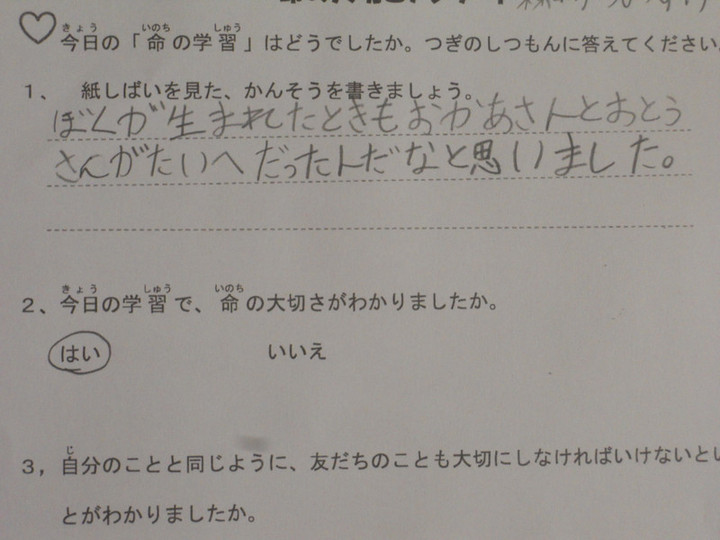 今日の「命の学習」はどうでしたか。つぎのしつもんに答えてください
1、 紙しばいを見た、かんそうを書きましょう。
ぼくが生まれてたときもおかあさんとおとう
さんがたいへだったんだなと思いました。
2、今日の学習で、命の大切さがわかりましたか。
はい いいえ
3，自分のことと同じように、友だちのことも大切にしなければいけないとい
とがわかりましたか。